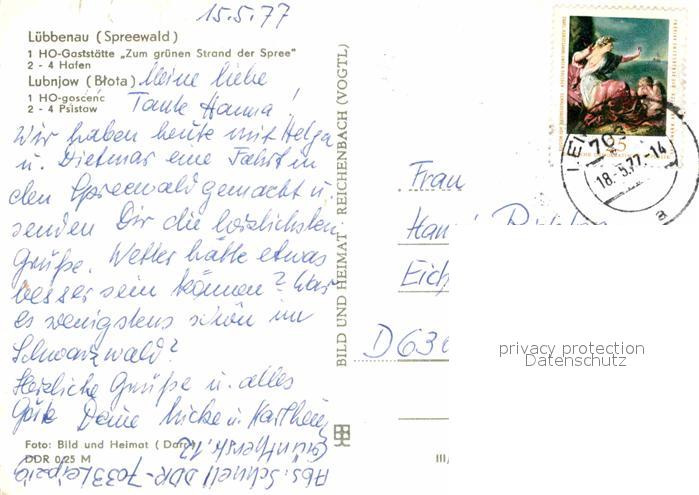 15.5.77
Lübbenau (Spreewald)
1 HO-Gaststätte „Zum grünen Strand der Spree"
2 - 4 Hafen
Lubnjow (Błota)
1 HO-gosćenc
2 - 4 Psistaw
Meine liebe
Tante Hanna!
Wir haben heute mit Helga
u. Dietmar eine Fahrt in
den Spreewald gemacht u.
senden Dir die herzlichsten
Grüße. Wetter hätte etwas
besser sein können? War
es wenigstens schön im
Schwarzwald?
Herzliche Grüße u. alles
Gute Deine Micke u. Karlheinz
Foto: Bild und Heimat
DDR 0,25 M
Abs: Schnell DDR-7033 Leipzig
12
BILD UND HEIMAT · REICHENBACH (VOGTL)
III/
25
LEI
703
18.-5.77.-14
a
Frau
Han
Eich
D 63
privacy protection
Datenschutz